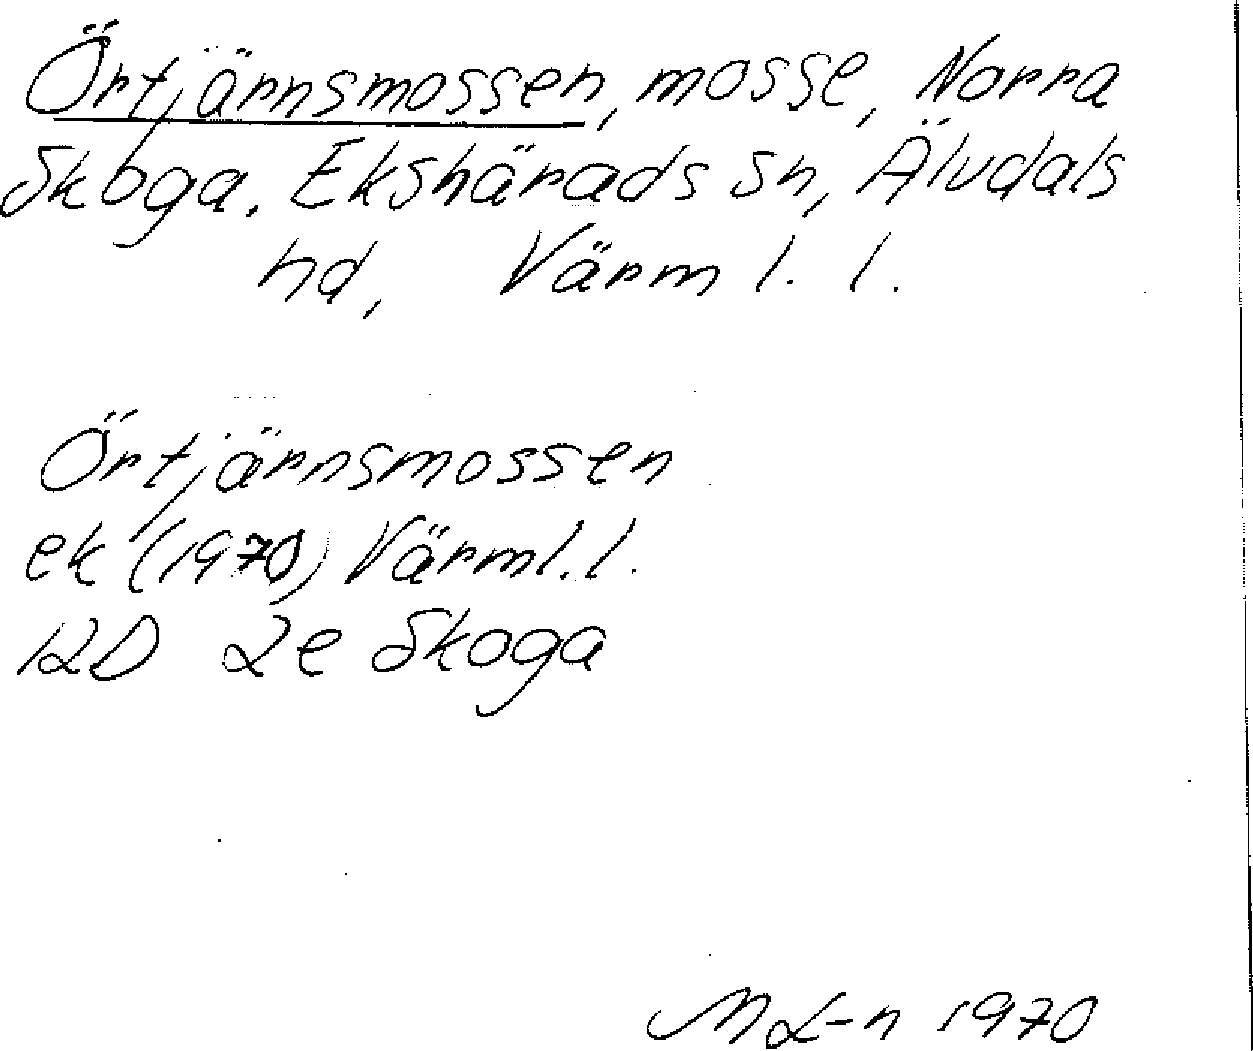 Örtjärnsmossen, mosse, Norra
Skoga, Ekshärads sn, Älvdals
hd, Värml. l.
Örtjärnsmossen
ek (1970) Värml. l.
12D 2e Skoga
ML-n 1970